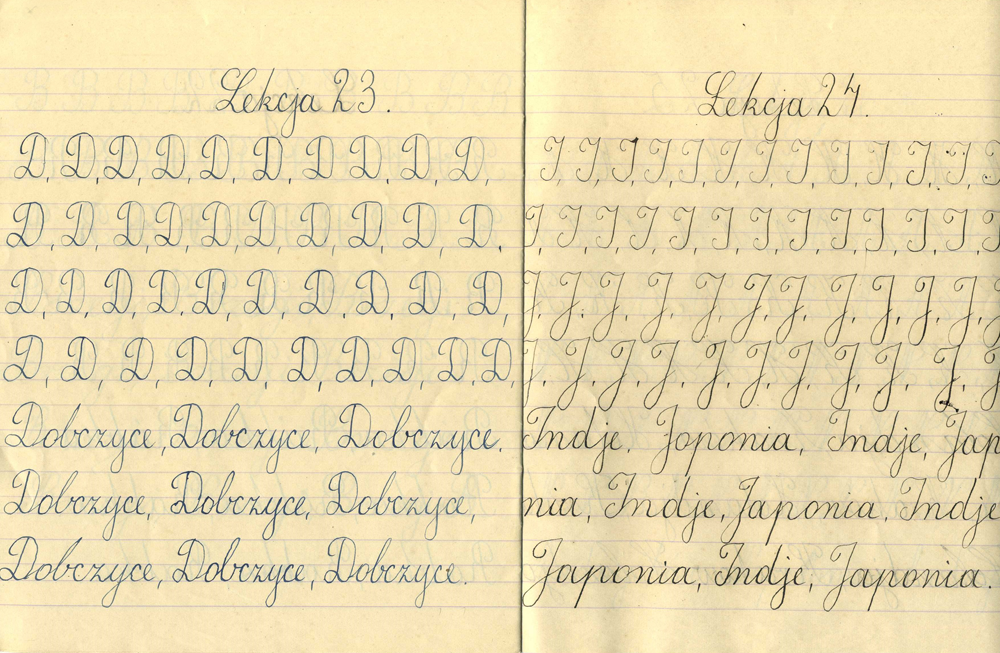 Lekcja 23.
D, D, D, D, D, D, D, D, D, D,
D, D, D, D, D, D, D, D, D, D,
D, D, D, D, D, D, D, D, D, D,
D, D, D, D, D, D, D, D, D, D,
Dobczyce, Dobczyce, Dobczyce.
Dobczyce, Dobczyce, Dobczyce,
Dobczyce, Dobczyce, Dobczyce.
Lekcja 24.
I, I, I, I, I, I, I, I, I, I, I, I, I
I, I, I, I, I, I, I, I, I, I, I, I, I
J, J, J, J, J, J, J, J, J, J, J, J
J, J, J, J, J, J, J, J, J, J, J
Indje, Joponia, Indje, Jap
nia, Indje, Japonia, Indje
Japonia, Indje, Japonia.